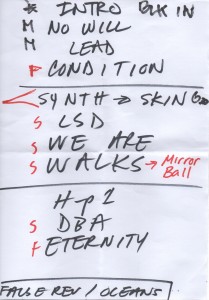 * INTRO BLK IN
M NO WILL
M LEAD
F CONDITION
SYNTH → SKIN
S LSD
S WE ARE
S WALKS → Mirror Ball
Hp1
S DBA
F ETERNITY
FALSE REV / OCEANS